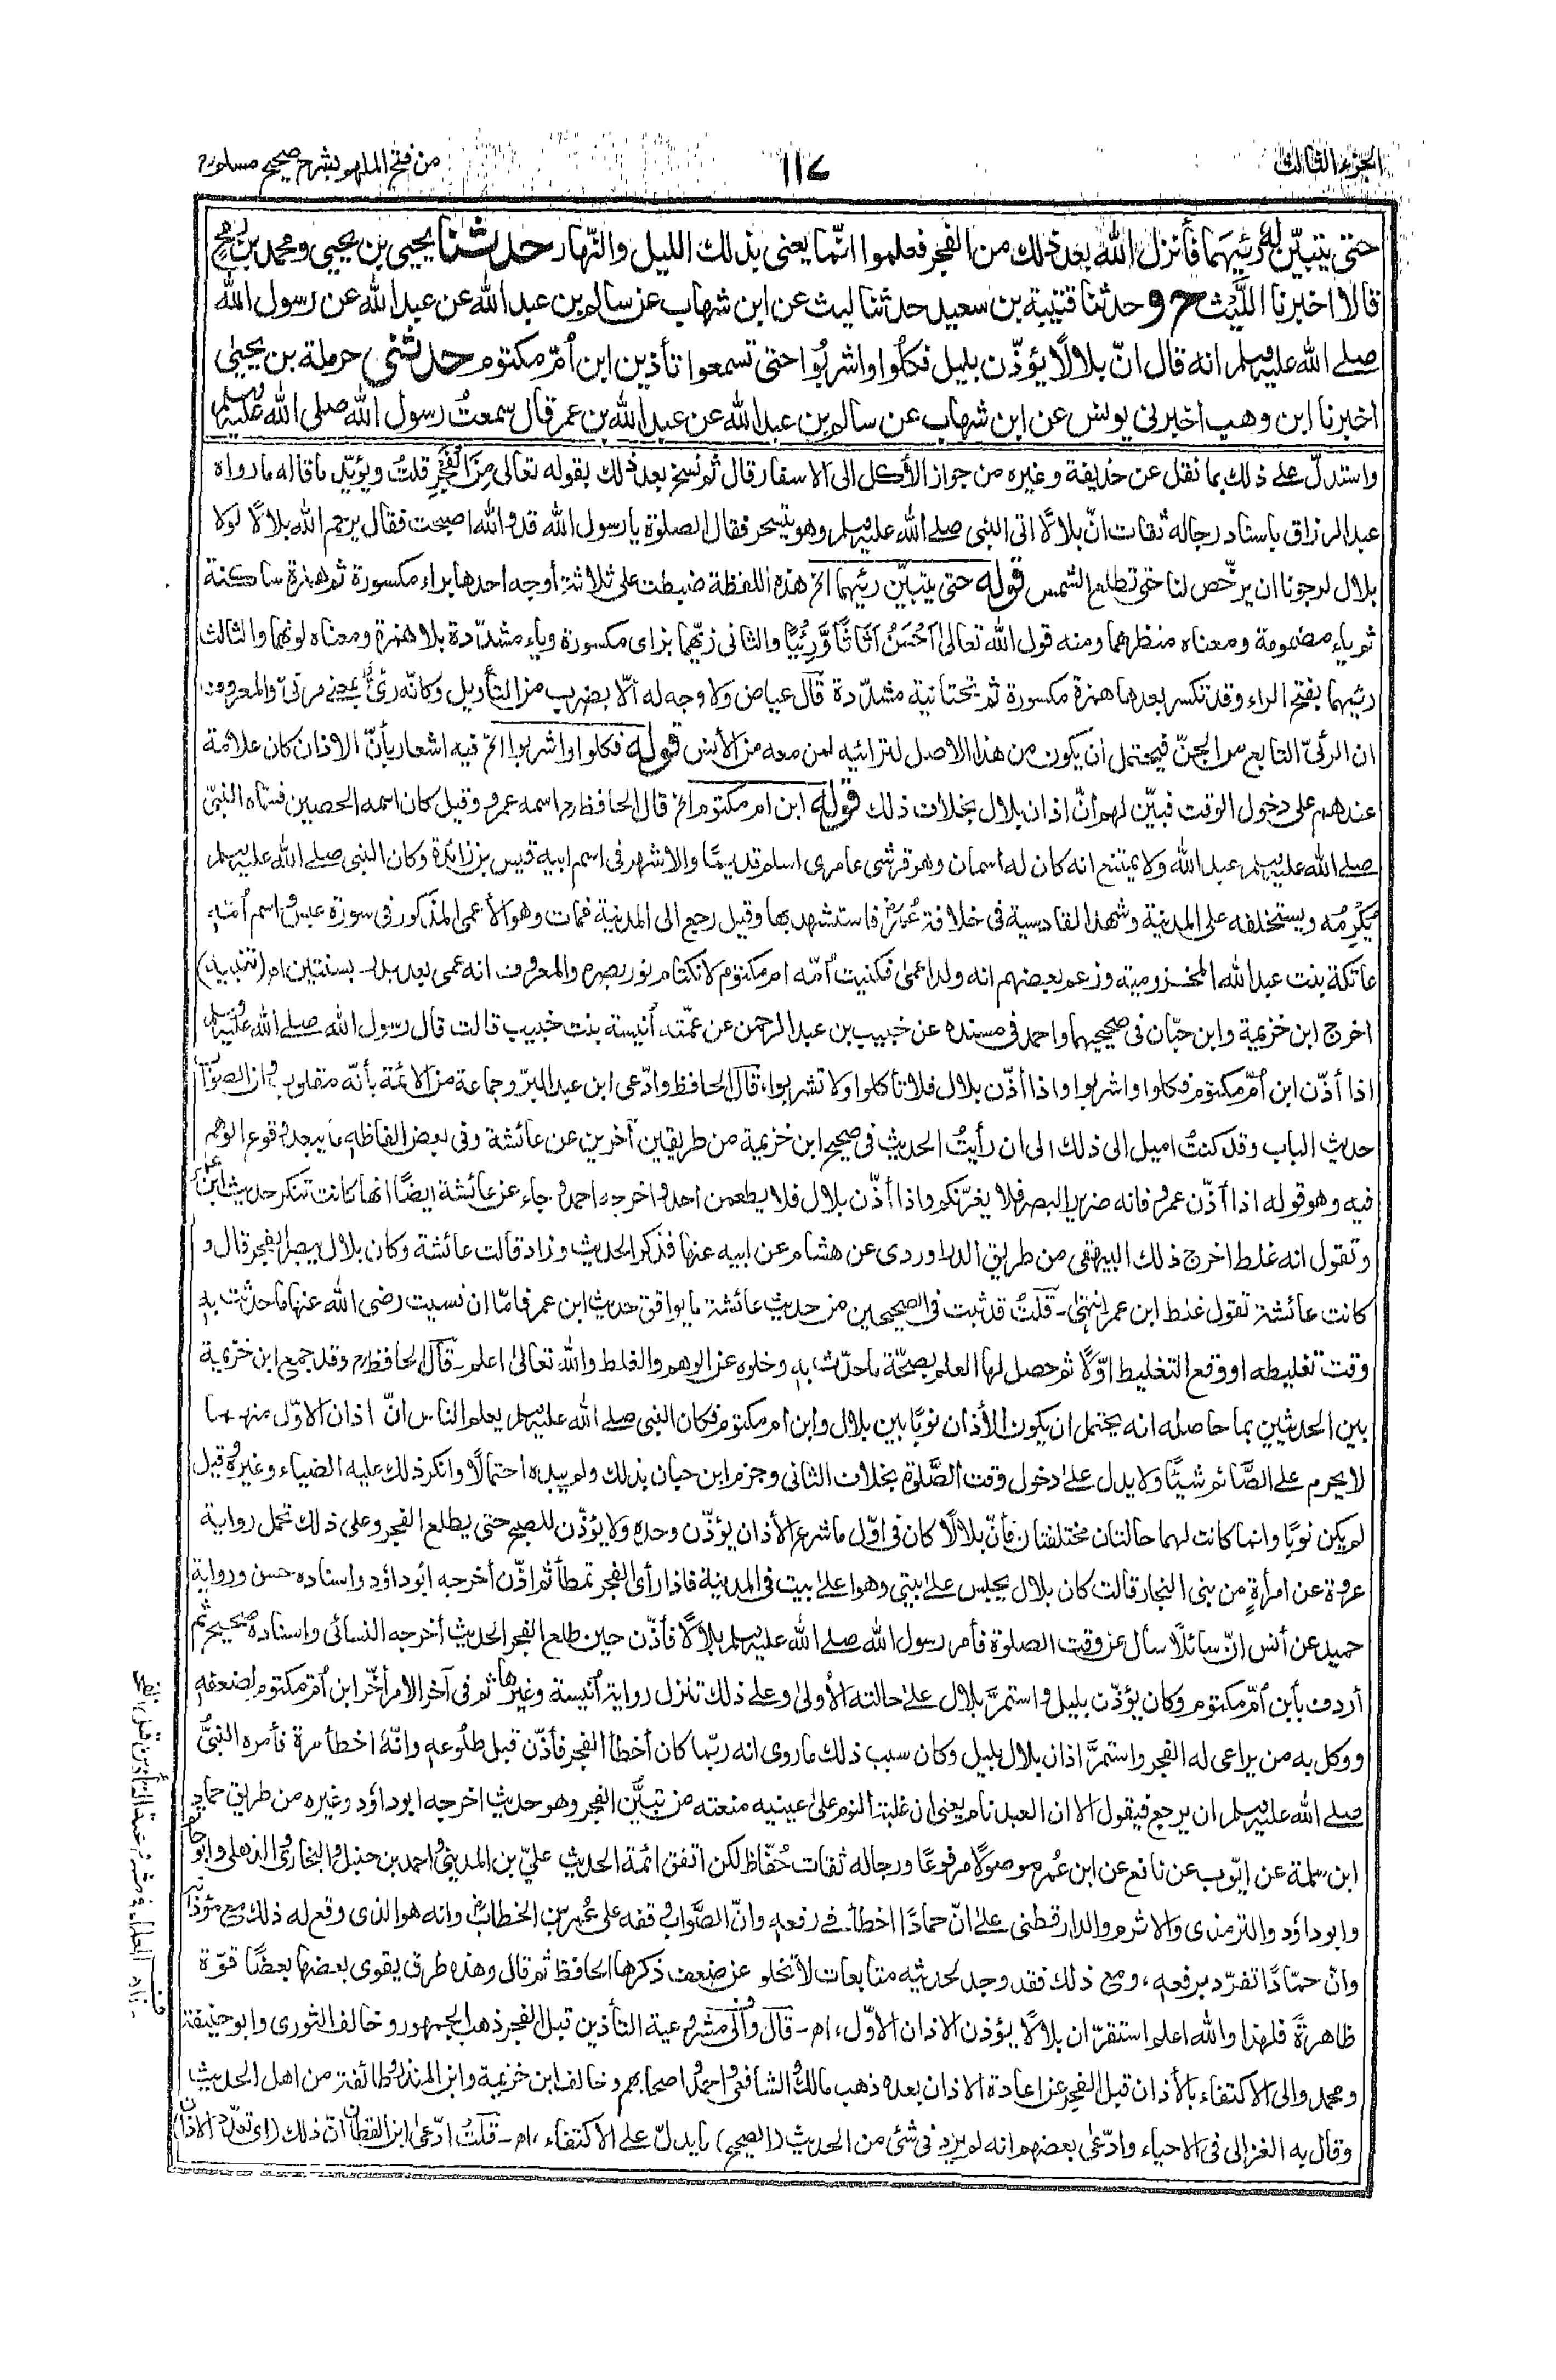 الجزء الثالث
١١٧
من فتح الملهم بشرح صحيح مسلم
حتى يتبيّن له رئيهما فأنزل الله بعد ذلك من الفجر فعلموا انّما يعنى بذلك الليل والنّهار حدثنا يحيى بن يحيى ومحمد بن رمح
قالا اخبرنا اللّيث ح و حدثنا قتيبة بن سعيد حدثنا ليث عن ابن شهاب عن سالم بن عبد الله عن عبد الله عن رسول الله
صلے الله عليه وسلم انه قال انّ بلالًا يؤذّن بليل فكلوا واشربُوا حتى تسمعوا تأذين ابن أمّ مكتوم حدثنى حرملة بن يحيىٰ
اخبرنا ابن وهب اخبرنى يونس عن ابن شهاب عن سالم بن عبد الله عن عبد الله بن عمر قال سمعتُ رسول الله صلى الله عليه وسلم
واستدلّ علے ذلك بما نقل عن حذيفة وغيره من جواز الأكل الى الاسفار قال ثم نسخ بعد ذلك بقوله تعالى مِنَ الْفَجْرِ قلتُ ويؤيّد ما قاله ما رواه
عبد الرزاق باسناد رجاله ثقات انّ بلالًا اتى النبى صلے الله عليه وسلم وهو يتسحر فقال الصلوٰة يا رسول الله قد والله اصبحت فقال يرحم الله بلالًا لولا
بلال لرجونا ان يرخّص لنا حتى تطلع الشمس قوله حتى يتبيّن رئيهما الخ هذه اللفظة ضبطت على ثلاثة أوجه احدها براء مكسورة ثم همزة ساكنة
ثم ياء مضمومة ومعناه منظرهما ومنه قول الله تعالىٰ اَحْسَنُ اَثَاثًا وَّرِئْيًا والثانى زيّهما بزاى مكسورة وياء مشدّدة بلا همزة ومعناه لونهما والثالث
رئيهما بفتح الراء وقد تكسر بعدها همزة مكسورة ثم تحتانية مشدّدة قال عياض ولا وجه له الّا بضرب من التأويل وكانّه رئىّ بمعنى مرئىّ والمعروف
ان الرئىّ التابع من الجنّ فيحتمل أن يكون من هذا الاصل لترائيه لمن معه من الأنس قوله فكلوا واشربوا الخ فيه اشعار بأنّ الاذان كان علامة
عندهم على دخول الوقت فبيّن لهم انّ اذان بلال بخلاف ذلك قوله ابن ام مكتوم الخ قال الحافظ رح اسمه عمرو وقيل كان اسمه الحصين فسمّاه النبىّ
صلے الله عليه وسلم عبد الله ولا يمتنع انه كان له اسمان وهو قرشى عامرى اسلم قديمًا والاشهر فى اسم ابيه قيس بن زائدة وكان النبى صلے الله عليه وسلم
يُكرِمُه ويستخلفه على المدينة وشهد القادسية فى خلافة عُمَرؓ فاستشهد بها وقيل رجع الى المدينة فمات وهو الأعمى المذكور فى سورة عبس واسم أمّه
عاتكة بنت عبد الله المخزومية وزعم بعضهم انه ولد اعمىٰ فكنيت أمّه ام مكتوم لانكتام نور بصره والمعروف انه عمى بعد بدر بسنتين اھ (تنبيه)
اخرج ابن خزيمة وابن حبّان فى صحيحيهما واحمد فى مسنده عن خبيب بن عبد الرحمن عن عمّته أنيسة بنت خبيب قالت قال رسول الله صلے الله عليه وسلم
اذا أذّن ابن أمّ مكتوم فكلوا واشربوا واذا أذّن بلال فلا تأكلوا ولا تشربوا، قال الحافظ وادّعى ابن عبد البرّ وجماعة من الائمة بأنّه مقلوب وان الصواب
حديث الباب وقد كنتُ اميل الى ذلك الى ان رأيتُ الحديث فى صحيح ابن خزيمة من طريقين آخرين عن عائشة وفى بعض الفاظه ما يبعد وقوع الوهم
فيه وهو قوله اذا أذّن عمرو فانه ضرير البصر فلا يغرّنكم واذا أذّن بلال فلا يطعمن احد واخرجه احمد وجاء عن عائشة ايضًا انها كانت تنكر حديث ابن عمر
وتقول انه غلط اخرج ذلك البيهقى من طريق الدراوردى عن هشام عن ابيه عنها فذكر الحديث وزاد قالت عائشة وكان بلال يبصر الفجر قال و
كانت عائشة تقول غلط ابن عمر انتهىٰ ـ قلتُ قد ثبت فى الصحيحين من حديث عائشة ما يوافق حديث ابن عمر فامّا ان نسيت رضى الله عنها ما حدثت به
وقت تغليطه او وقع التغليط اوّلًا ثم حصل لها العلم بصحّة ما حدّث به وخلوه عن الوهم والغلط والله تعالىٰ اعلم ـ قال الحافظ رح وقد جمع ابن خزيمة
بين الحديثين بما حاصله انه يحتمل ان يكون الأذان نوبًا بين بلال وابن ام مكتوم فكان النبى صلے الله عليه وسلم يعلم الناس انّ اذان الاوّل منهما
لا يحرم على الصّائم شيئًا ولا يدل علىٰ دخول وقت الصّلوٰة بخلاف الثانى وجزم ابن حبان بذلك ولم يبده احتمالًا وانكر ذلك عليه الضياء وغيره وقيل
لم يكن نوبًا وانما كانت لهما حالتان مختلفتان فأنّ بلالًا كان فى اوّل ما شرع الأذان يؤذّن وحده ولا يؤذّن للصبح حتى يطلع الفجر وعلى ذلك تحمل رواية
عروة عن امرأةٍ من بنى النجار قالت كان بلال يجلس علىٰ بيتى وهو اعلىٰ بيت فى المدينة فاذا رأى الفجر تمطأ ثم اذّن أخرجه ابوداؤد واسناده حسن ورواية
حميد عن أنس انّ سائلًا سأل عن وقت الصلوٰة فأمر رسول الله صلے الله عليه وسلم بلالًا فأذّن حين طلع الفجر الحديث أخرجه النسائى واسناده صحيح ثم
أردف بأبن أمّ مكتوم وكان يؤذّن بليل واستمرَّ بلال علىٰ حالته الأولىٰ وعلے ذلك تنزل رواية أنيسة وغيرها ثم فى آخر الامر أخّر ابن أمّ مكتوم لضعفه
ووكل به من يراعى له الفجر واستمرَّ اذان بلال بليل وكان سبب ذلك ما روى انه ربّما كان أخطأ الفجر فأذّن قبل طلوعه وانّه اخطأ مرة فأمره النبىُّ
صلے الله عليه وسلم ان يرجع فيقول الا ان العبد نام يعنى ان غلبة النوم علىٰ عينيه منعته من تبيُّن الفجر وهو حديث اخرجه ابوداؤد وغيره من طريق حماد
ابن سلمة عن ايّوب عن نافع عن ابن عُمر موصولًا مرفوعًا ورجاله ثقات حُفّاظ لكن اتفق ائمة الحديث علىّ بن المدينى واحمد بن حنبل والبخارى والذهلى وابوحاتم
وابوداؤد والترمذى والاثرم والدارقطنى علىٰ انّ حمادًا اخطأ فے رفعه وانّ الصّواب وقفه على عُمر بن الخطابؓ وانه هو الذى وقع له ذلك مع مؤذنه
وانّ حمّادًا تفرّد برفعه، ومع ذلك فقد وجد لحديثه متابعات لا تخلو عن ضعف ذكرها الحافظ ثم قال وهذه طرق يقوى بعضها بعضًا قوّة
ظاهرةً فلهذا والله اعلم استقرّ ان بلالًا يؤذن الاذان الأوّل، اھ ـ قال والىٰ مشروعية التأذين قبل الفجر ذهب الجمهور وخالف الثورى وابوحنيفة
ومحمد والى الاكتفاء بالأذان قبل الفجر عن اعادة الاذان بعده ذهب مالك والشافعى واحمد واصحابهم وخالف ابن خزيمة وابن المنذر وطائفة من اهل الحديث
وقال به الغزالى فى الاحياء وادّعىٰ بعضهم انه لم يرد فى شئ من الحديث (الصحيح) ما يدلّ على الاكتفاء، اھ ـ قلتُ ادّعىٰ ابن القطان انّ ذلك (اى تعدّد الاذان)